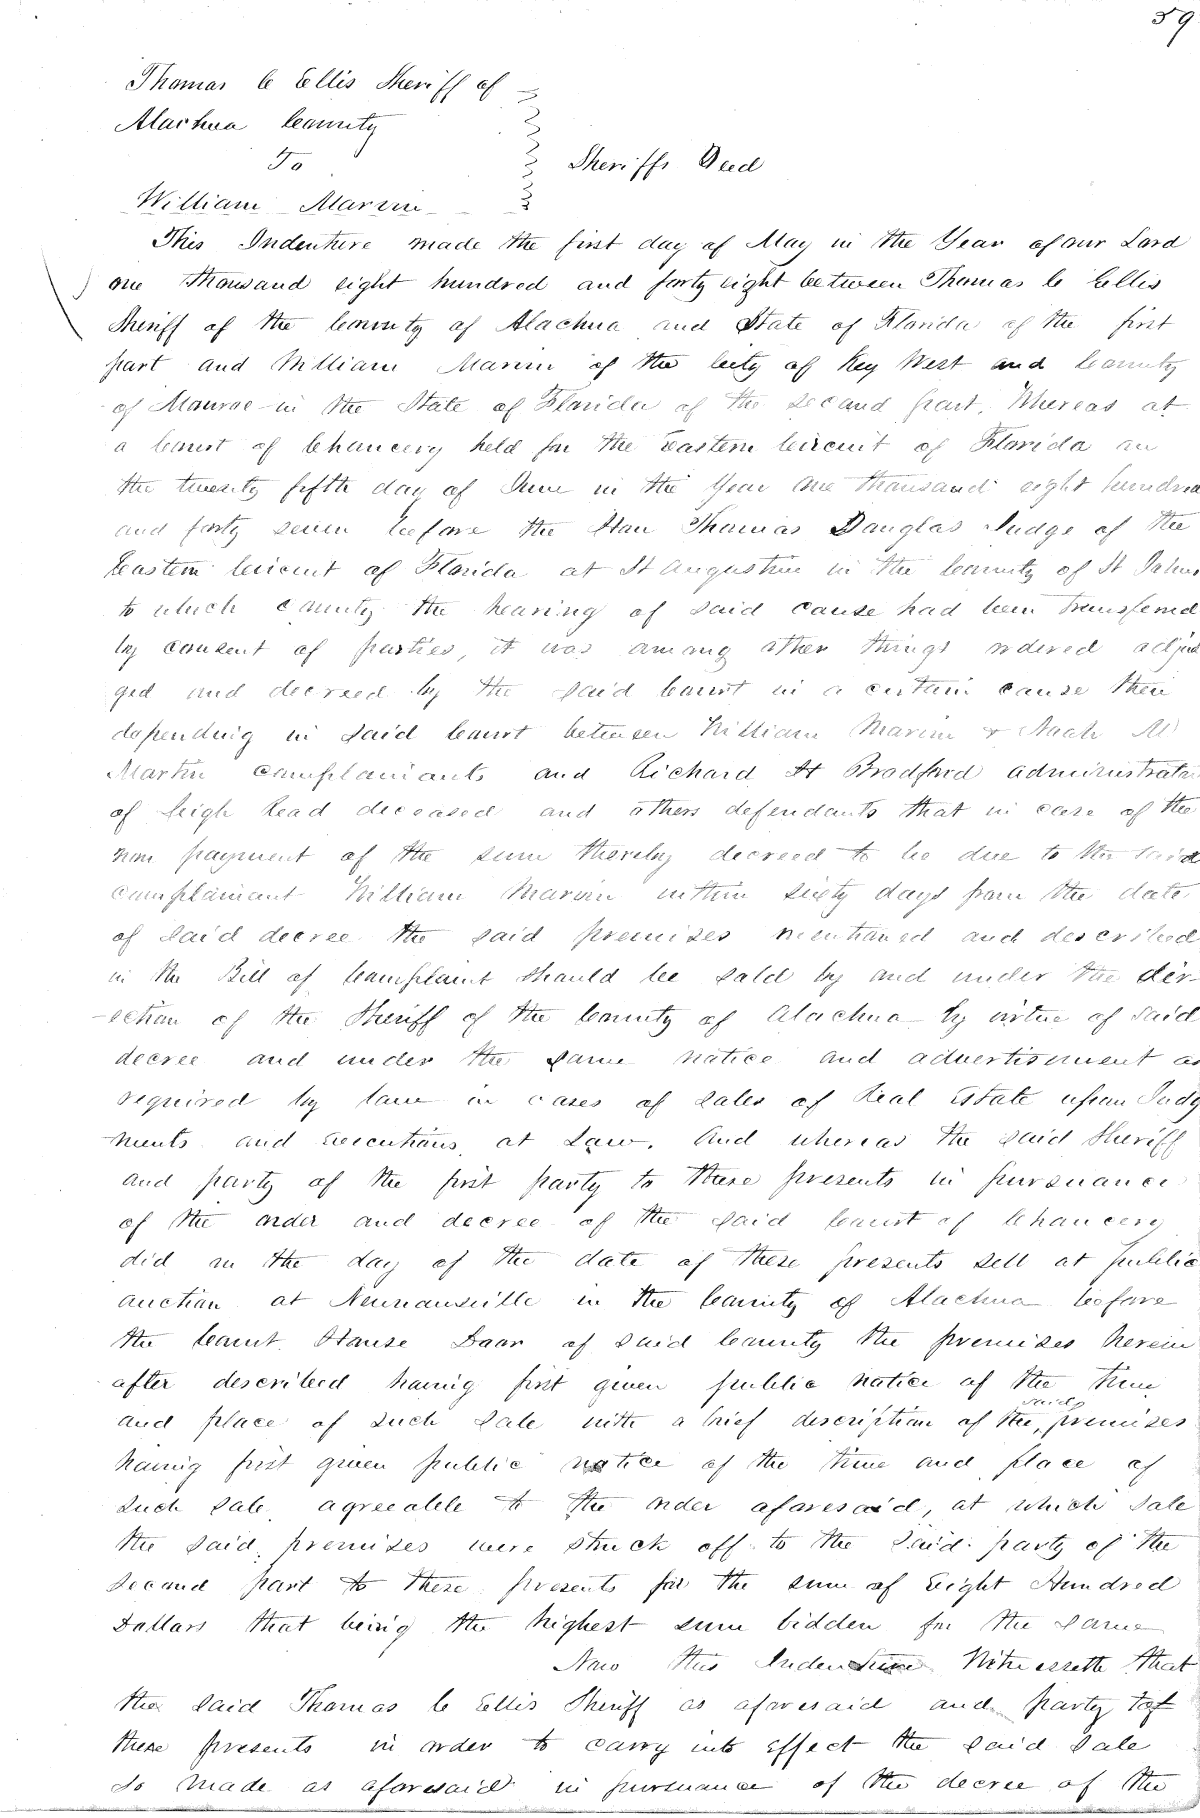 59
Thomas C Ellis Sheriff of
Alachua County
To
Sheriffs Deed
William Marvin
This Indenture made the first day of May in the Year of our Lord
one thousand eight hundred and forty eight between Thomas C Ellis
Sheriff of the County of Alachua and State of Florida of the first
part and William Marvin of the City of Key West and County
of Monroe in the State of Florida of the second part. Whereas at
a Court of Chancery held for the Eastern Circuit of Florida on
the twenty fifth day of June in the Year one thousand eight hundred
and forty seven before the Hon Thomas Douglas Judge of the
Eastern Circuit of Florida at St Augustine in the County of St Johns
to which county the hearing of said cause had been transferred
by consent of parties, it was among other things ordered adjud
ged and decreed by the said Court in a certain cause then
depending in said Court between William Marvin & Noah
Martin complainants and Richard H Bradford administrator
of Leigh Read deceased and others defendants that in case of the
non payment of the sum thereby decreed to be due to the said
complainant William Marvin within sixty days from the date
of said decree the said premises mentioned and described
in the Bill of Complaint should be sold by and under the dir-
-ection of the Sheriff of the County of Alachua by virtue of said
decree and under the same notice and advertisement as
required by law in cases of sales of Real Estate upon Judg
-ments and executions at Law. And whereas the said Sheriff
and party of the first party to these presents in pursuance
of the order and decree of the said Court of Chancery
did on the day of the date of these presents sell at public
auction at Newnansville in the County of Alachua before
the Court House Door of said County the premises herein
after described having first given public notice of the time
and place of such sale with a brief description of the, said premises
having first given public notice of the time and place of
such sale agreeable to the order aforesaid, at which sale
the said premises were struck off to the said party of the
second part to these presents for the sum of Eight Hundred
Dollars that being the highest sum bidden for the same
Now this Indenture Witnesseth that
the said Thomas C Ellis Sheriff as aforesaid and party to
these presents in order to carry into effect the said sale
so made as aforesaid in pursuance of the decree of the